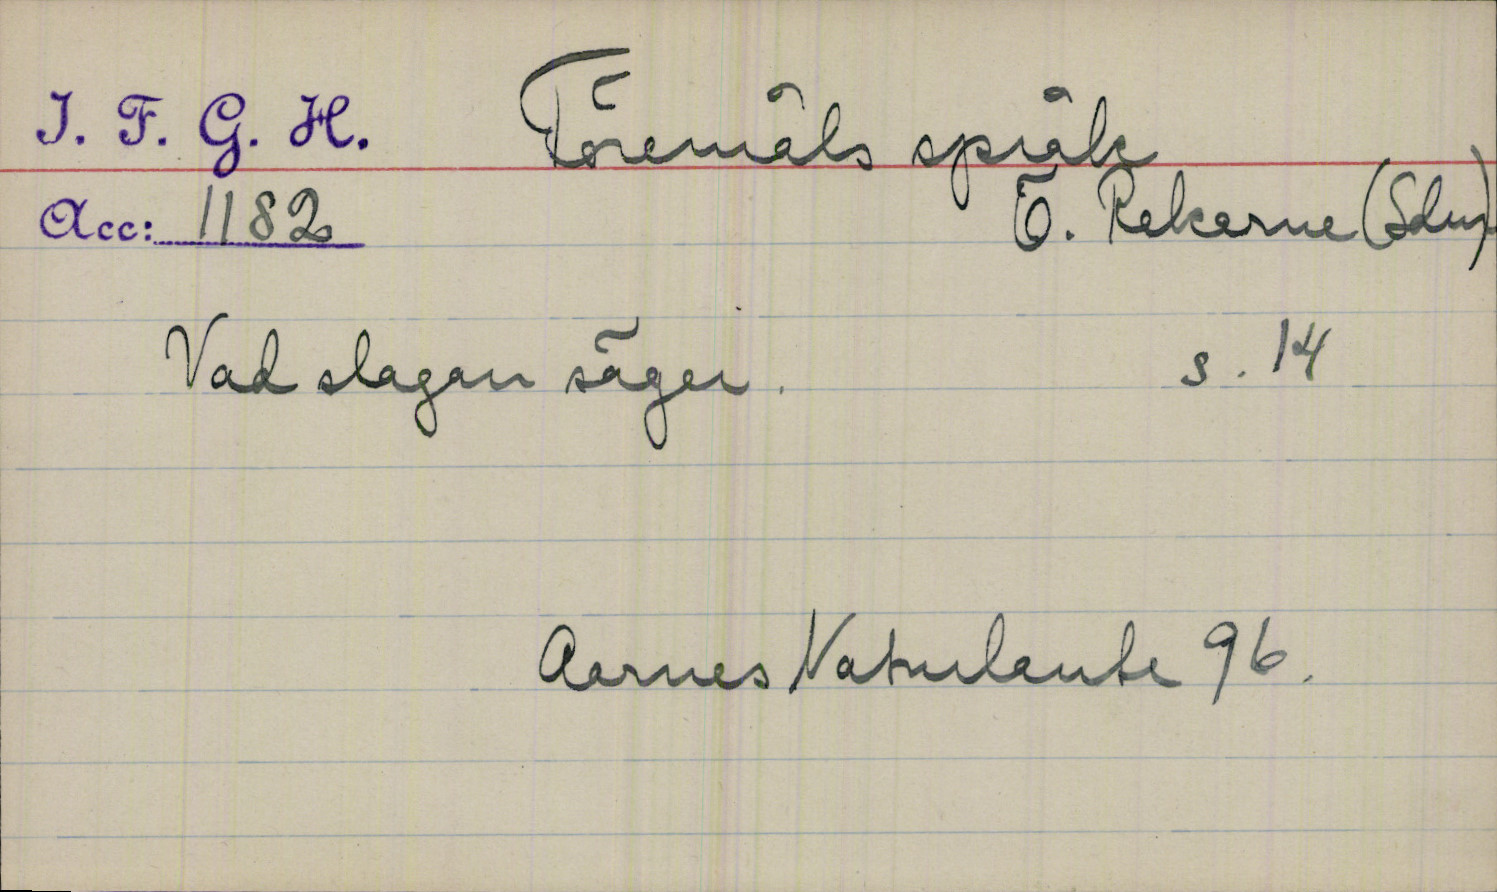 I. F. G. H. Föremåls språk
Acc: 1182 Ö. Rekarne (Sdm)
Vad slagan säger. s. 14
Aarnes Naturlaute 96.